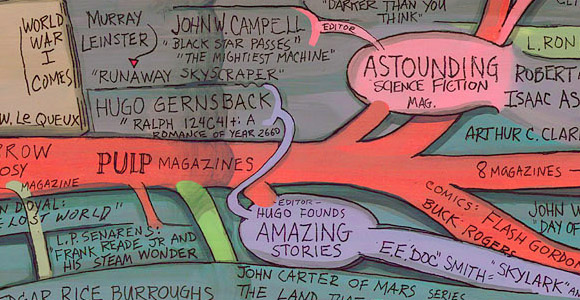 "DARKER THAN YOU
THINK"
MURRAY
LEINSTER
"RUNAWAY SKYSCRAPER"
JOHN W. CAMPELL
"BLACK STAR PASSES"
"THE MIGHTIEST MACHINE"
EDITOR
WORLD
WAR
I
COMES
W. LE QUEUX
ASTOUNDING
SCIENCE FICTION
MAG.
L. RON
ROBERT
ISAAC AS
ARTHUR C. CLAR
HUGO GERNSBACK
"RALPH 124C41+: A
ROMANCE OF YEAR 2660
ROW
OSY
MAGAZINE
PULP MAGAZINES
8 MAGAZINES
COMICS: FLASH GORDO
BUCK ROGERS
JOHN W
"DAY OF
N DOYAL:
E LOST WORLD"
L.P. SENARENS:
"FRANK READE JR AND
HIS STEAM WONDER
-EDITOR-
HUGO FOUNDS
AMAZING
STORIES
E.E. "DOC" SMITH= "SKYLARK"
EDGAR RICE BURROUGHS
JOHN CARTER OF MARS SERIES
THE LAND THAT